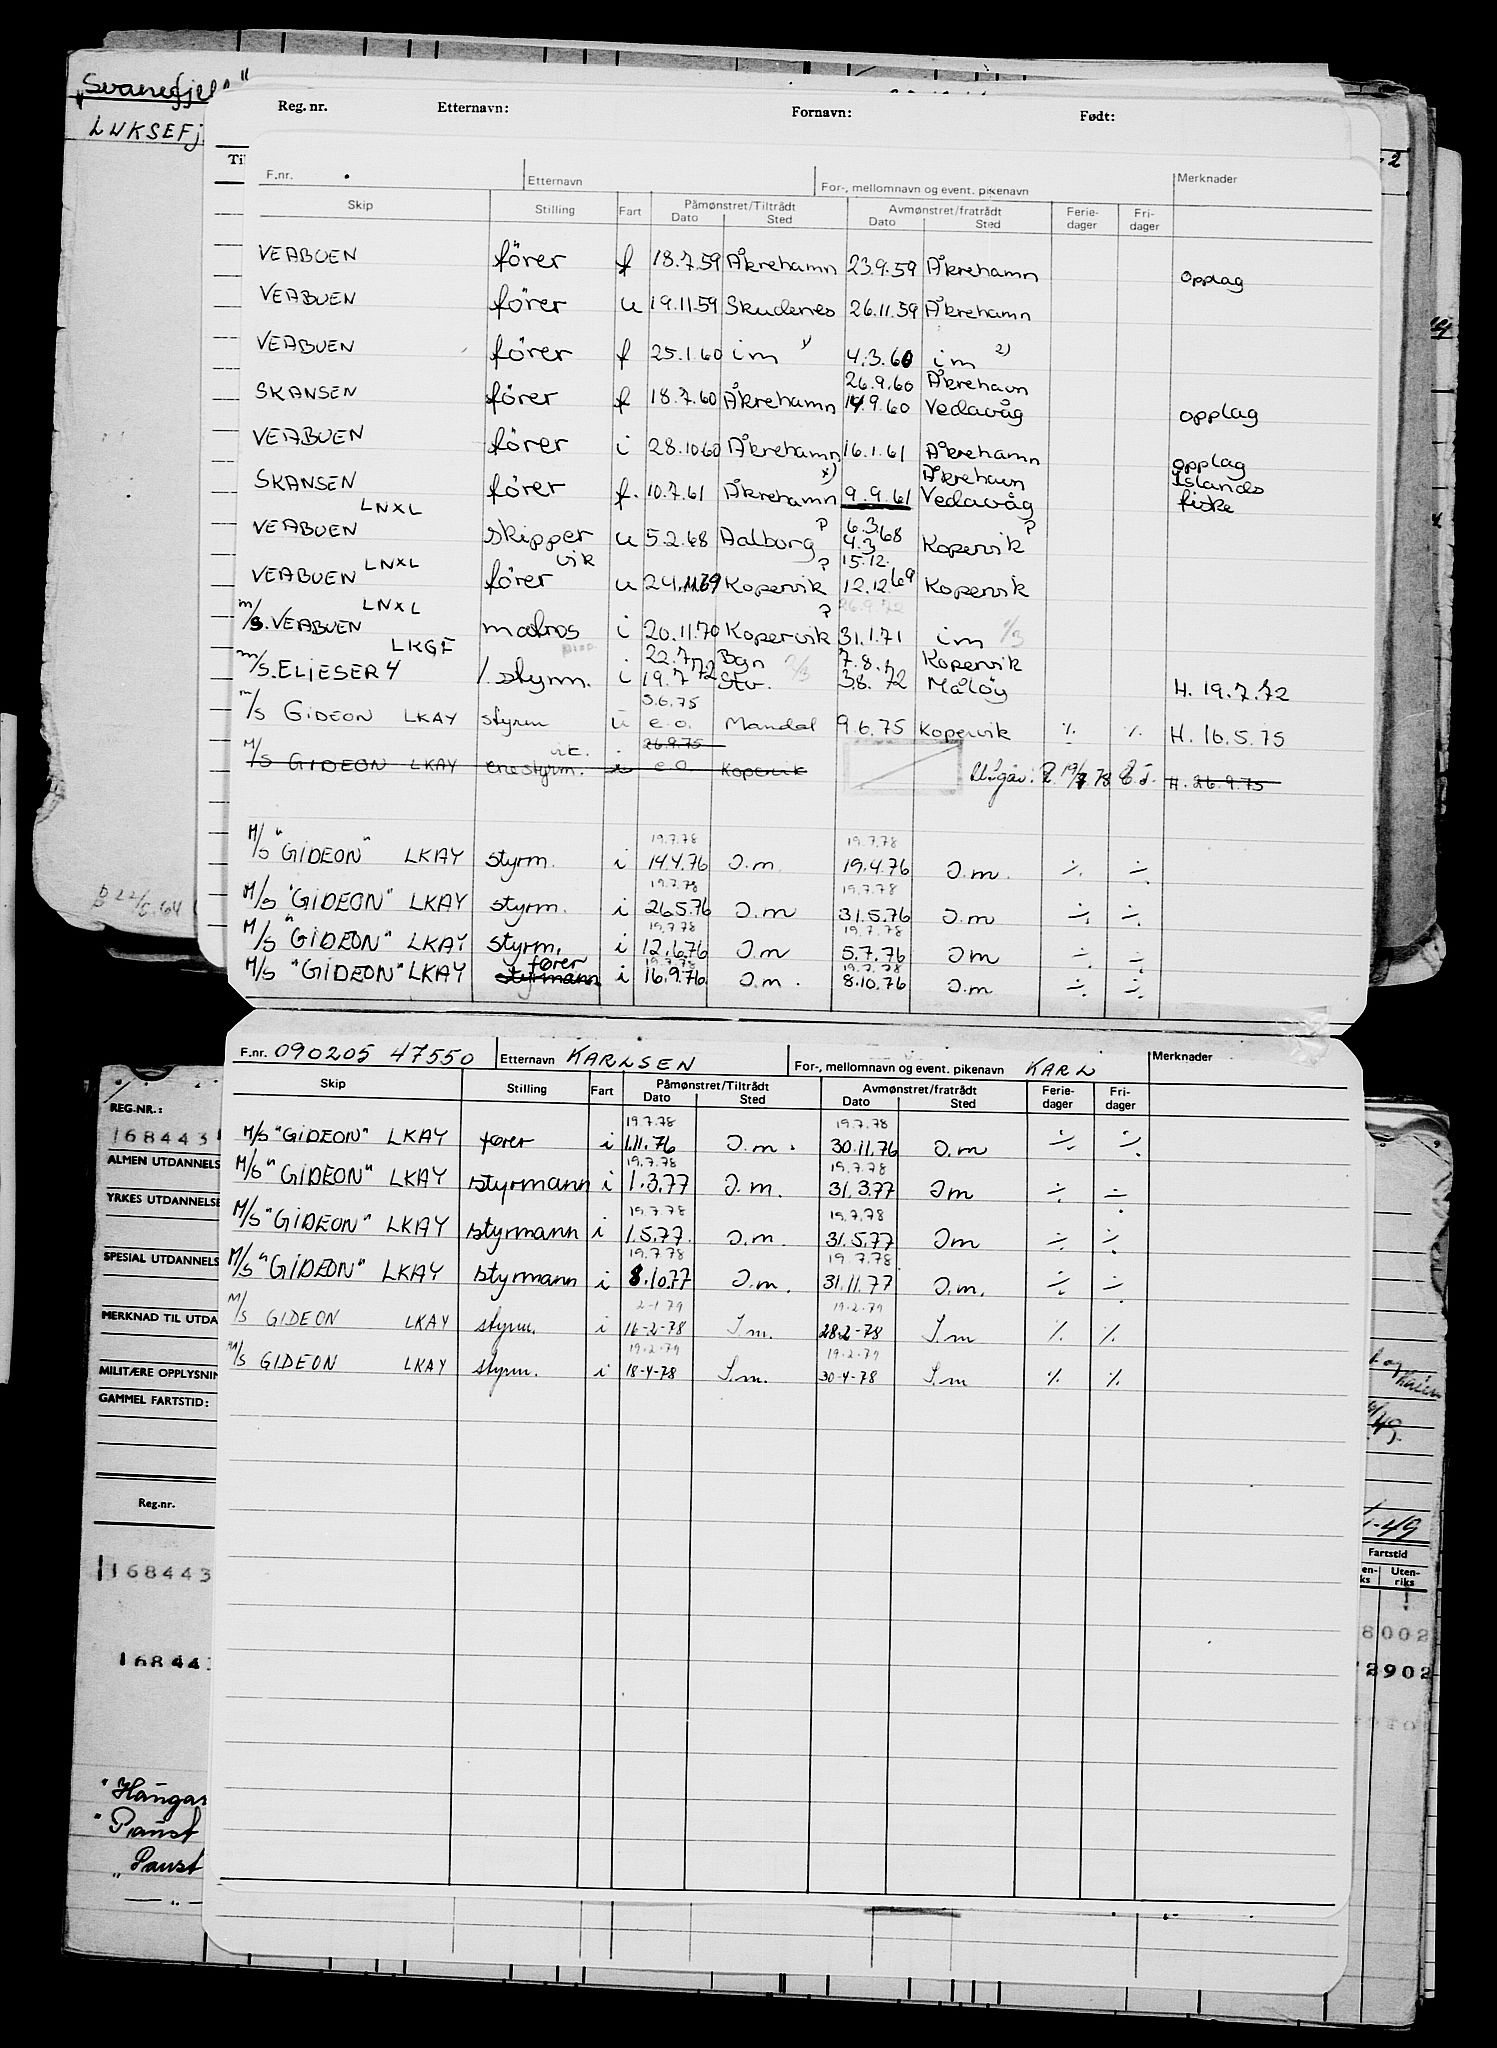 "Svanefjel"
Reg. nr. Etternavn: Fornavn: Født:
F.nr. Etternavn For-, mellomnavn og event. pikenavn Merknader
Skip Stilling Fart Påmønstret/Tiltrådt Dato Sted Avmønstret/fratrådt Dato Sted Ferie-dager Fri-dager
VEABUEN förer f 18.7.59 Åkrehamn 23.9.59 Åkrehamn opplag
VEABUEN förer u 19.11.59 Skudenes 26.11.59 Åkrehamn
VEABUEN förer f 25.1.60 im 4.3.60 im 2)
26.9.60 Åkrehavn
SKANSEN förer f 18.7.60 Åkrehamn 14.9.60 Vedavåg opplag
VEABUEN förer i 28.10.60 Åkrehamn 16.1.61 Åkrehamn opplag
x) Åkrehavn Islands
SKANSEN förer f. 10.7.61 Åkrehamn 9.9.61 Vedavåg fiske
LNXL ? 6.3.68 ?
VEABUEN skipper u 5.2.68 Aalborg 4.3 Kopervik
LNXL vik ? 15.12.
VEABUEN förer u 24.11.69 Kopervik 12.12.69 Kopervik
LNXL ? 26.9.72
m/s. VEABUEN matros i 20.11.70 Kopervik 31.1.71 im 1/3
LKGF 22.7.72 Bgn 7.8. Kopervik
m/s. ELIESER 4 1. styrm. i 19.7.72 Stv. 2/3 3.8.72 Måløy H. 19.7.72
3.6.75
m/s GIDEON LKAY styrm u e.o. Mandal 9.6.75 Kopervik ⁒ ⁒ H. 16.5.75
vik. 26.9.75
M/s GIDEON LKAY enestyrm. i e.o Kopervik H. 26.9.75
19.7.78 19.7.78
M/s "GIDEON" LKAY styrm. i 14.4.76 I.m. 19.4.76 I.m. ⁒ ⁒
19.7.78 19.7.78
M/s "GIDEON" LKAY styrm. i 26.5.76 I.m 31.5.76 I.m ⁒ ⁒
19.7.78 19.7.78
M/s "GIDEON" LKAY styrm. i 12.6.76 I.m 5.7.76 I m ⁒ ⁒
fører 19.7.78 19.7.78
M/s "GIDEON" LKAY styrmann i 16.9.76 I.m. 8.10.76 I.m ⁒ ⁒
B 22/5.64
F.nr. 090205 47550 Etternavn KARLSEN For-, mellomnavn og event. pikenavn KARL Merknader
Skip Stilling Fart Påmønstret/Tiltrådt Dato Sted Avmønstret/fratrådt Dato Sted Ferie-dager Fri-dager
19.7.78 19.7.78
M/s "GIDEON" LKAY fører i 1.11.76 I.m. 30.11.76 I.m ⁒ ⁒
19.7.78 19.7.78
M/s "GIDEON" LKAY styrmann i 1.3.77 I.m. 31.3.77 I m ⁒ ⁒
19.7.78 19.7.78
M/s "GIDEON" LKAY styrmann i 1.5.77. I.m. 31.5.77 I m ⁒ ⁒
19.7.78 19.7.78
M/s "GIDEON" LKAY styrmann i 8.10.77 I.m. 31.11.77 I.m. ⁒ ⁒
2-1-79 19-2-79
M/s GIDEON LKAY styrm. i 16-2-78 I.m. 28-2-78 I.m ⁒ ⁒
19-2-79 19-2-79
M/s GIDEON LKAY styrm. i 18-4-78 I.m. 30-4-78 I.m ⁒ ⁒
REG.NR.:
168443
ALMEN UTDANNELS
YRKES UTDANNELSE
SPESIAL UTDANNELS
MERKNAD TIL UTDA
MILITÆRE OPPLYSNIN
GAMMEL FARTSTID:
Reg.nr.
168443
16844
1-49
Fartstid
en-ks Uten-riks
8002
2902
"Hangar
"Panst
"Panst
— " —